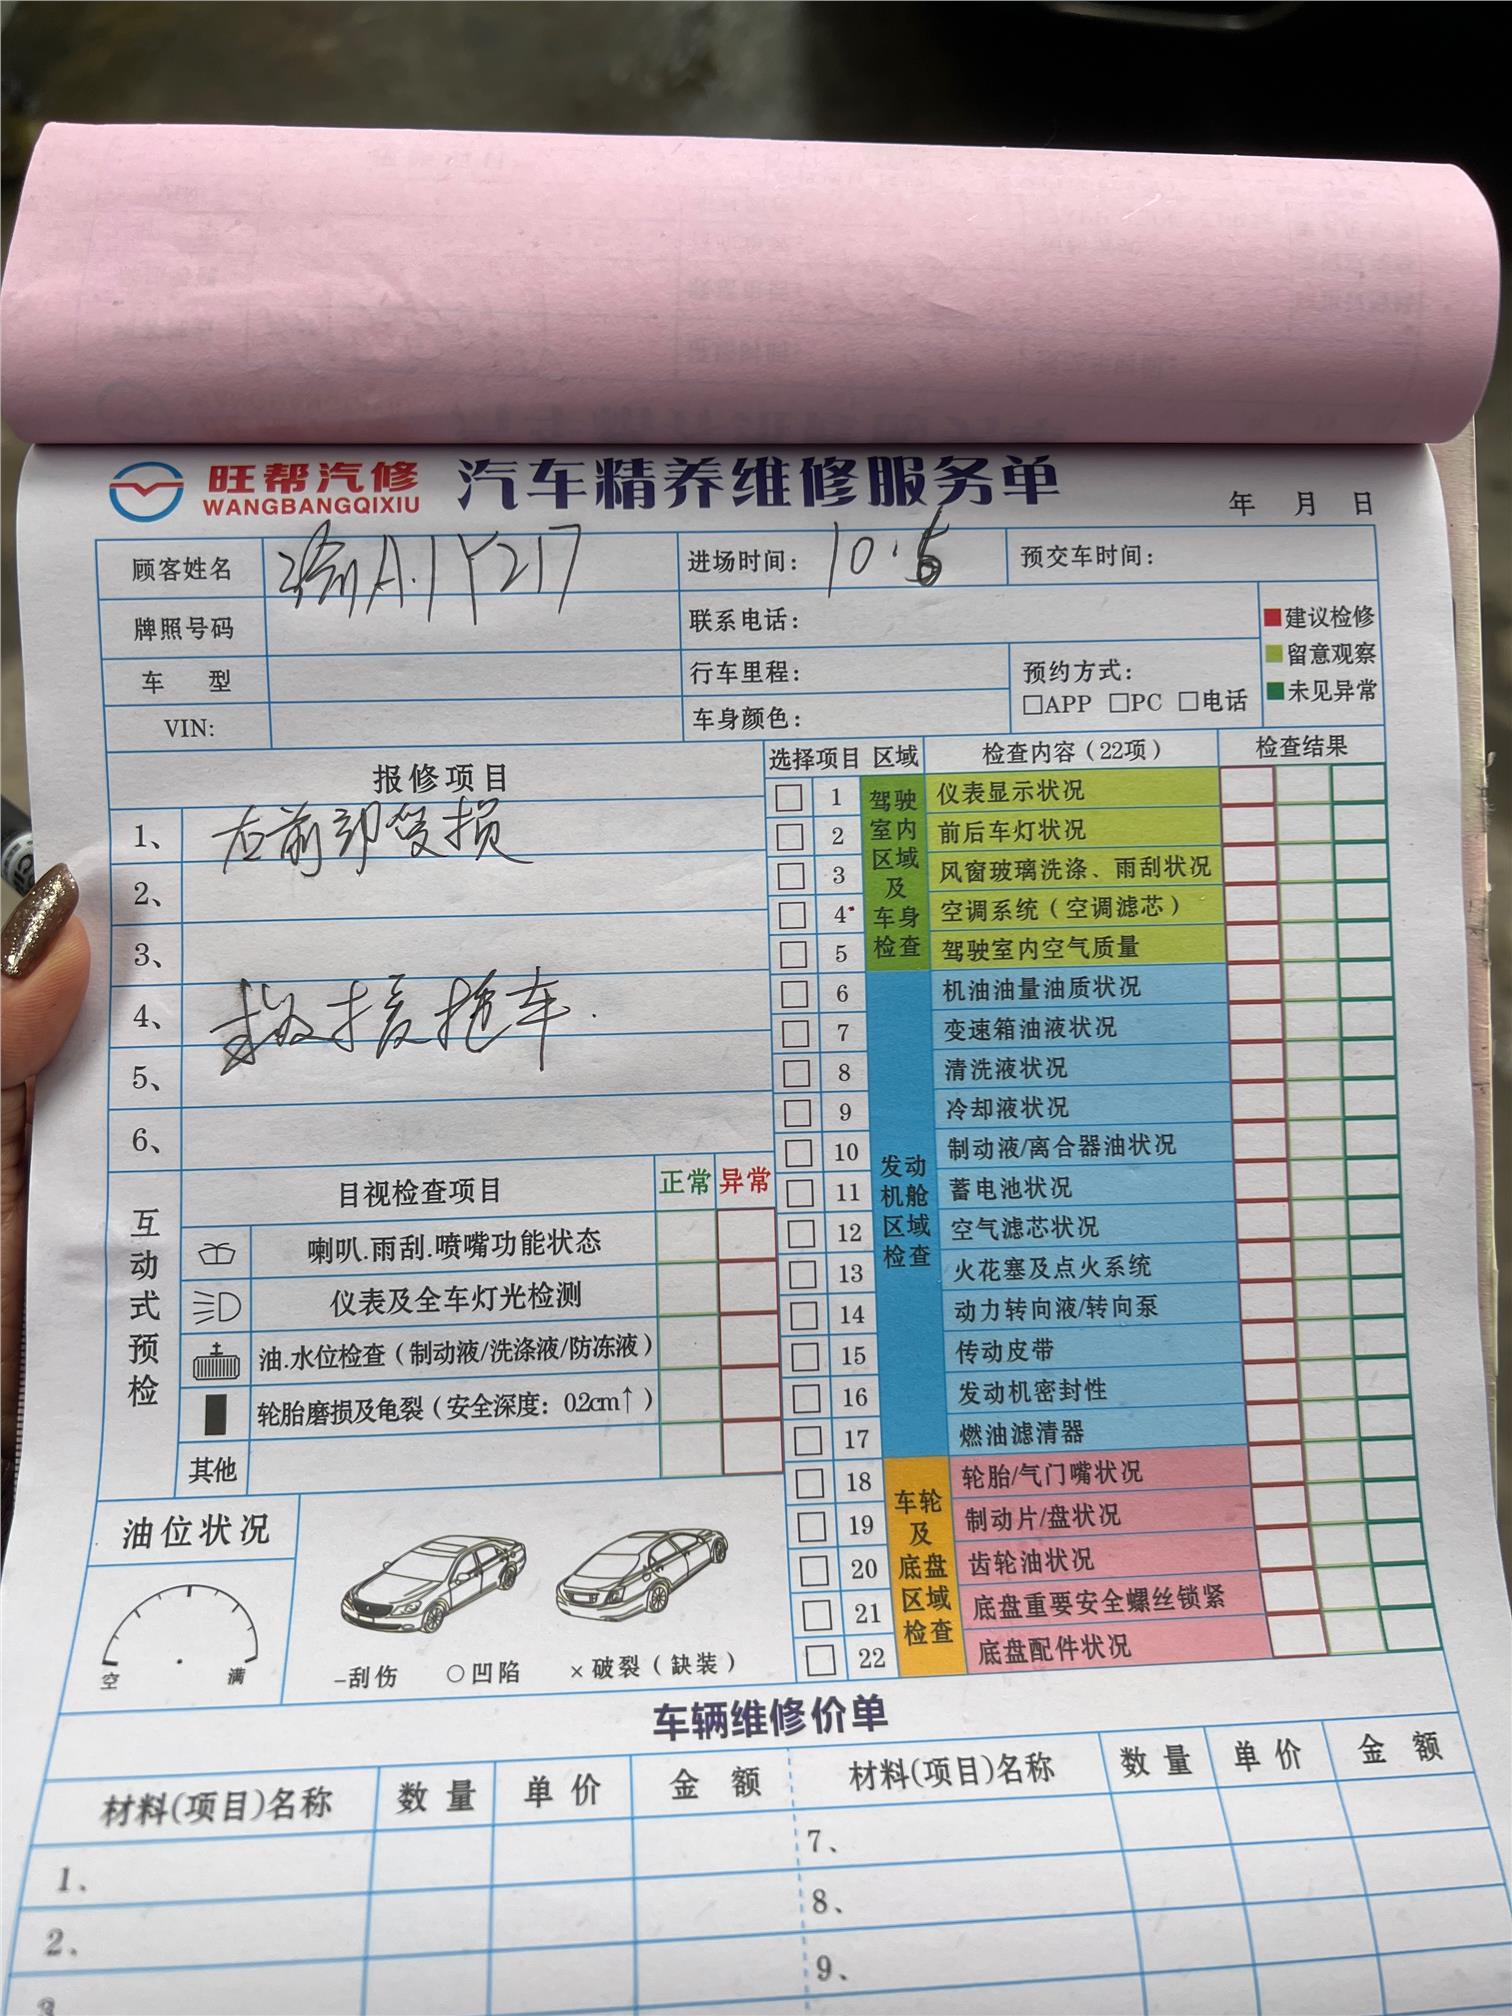 旺帮汽修
WANGBANGQIXIU
汽车精养维修服务单
年 月 日
顾客姓名 渝A·1Y217 进场时间: 10·5 预交车时间:
牌照号码 联系电话:
车 型 行车里程: 预约方式:
□APP □PC □电话
VIN: 车身颜色:
建议检修
留意观察
未见异常
报修项目
1、 右前部受损
2、
3、
4、 救援拖车.
5、
6、
互动式预检
目视检查项目 正常 异常
喇叭.雨刮.喷嘴功能状态
仪表及全车灯光检测
油.水位检查(制动液/洗涤液/防冻液)
轮胎磨损及龟裂(安全深度: 0.2cm↑)
其他
油位状况
空 满
-刮伤 ○凹陷 ×破裂(缺装)
选择项目 区域 检查内容(22项) 检查结果
驾驶室内区域及车身检查
1 仪表显示状况
2 前后车灯状况
3 风窗玻璃洗涤、雨刮状况
4 空调系统(空调滤芯)
5 驾驶室内空气质量
发动机舱区域检查
6 机油油量油质状况
7 变速箱油液状况
8 清洗液状况
9 冷却液状况
10 制动液/离合器油状况
11 蓄电池状况
12 空气滤芯状况
13 火花塞及点火系统
14 动力转向液/转向泵
15 传动皮带
16 发动机密封性
17 燃油滤清器
车轮及底盘区域检查
18 轮胎/气门嘴状况
19 制动片/盘状况
20 齿轮油状况
21 底盘重要安全螺丝锁紧
22 底盘配件状况
车辆维修价单
材料(项目)名称 数量 单价 金额 材料(项目)名称 数量 单价 金额
1、 7、
2、 8、
3、 9、